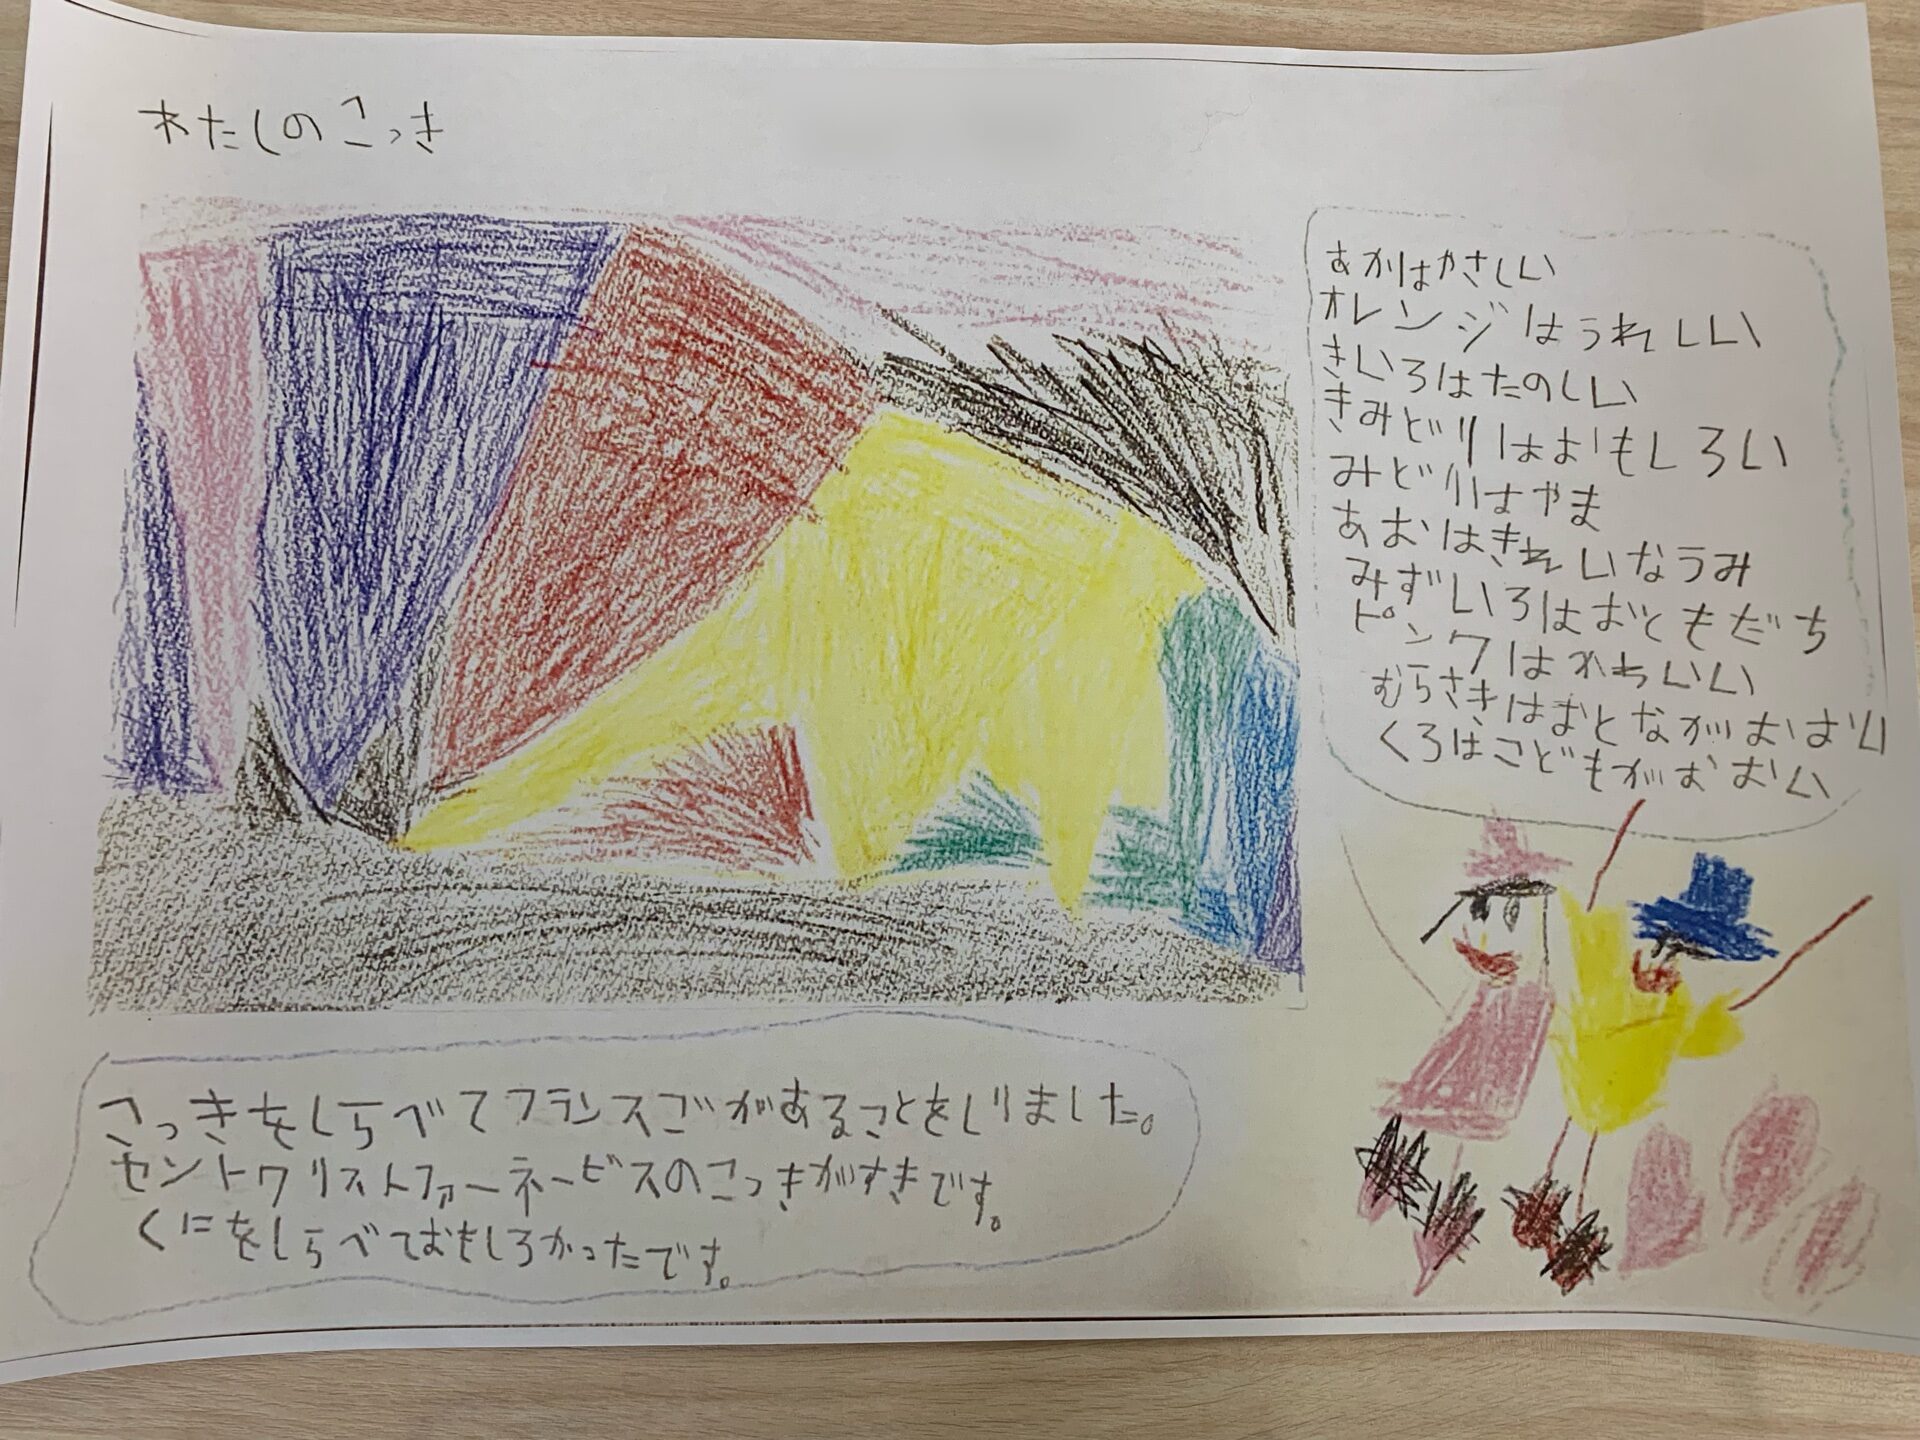 わたしのこっき
あかはやさしい
オレンジはうれしい
きいろはたのしい
きみどりはおもしろい
みどりはやま
あおはきれいなうみ
みずいろはおともだち
ピンクはかわいい
むらさきはおとながおおい
くろはこどもがおおい
こっきをしらべてフランスごがあることをしりました。
セントクリストファーネービスのこっきがすきです。
くにをしらべておもしろかったです。